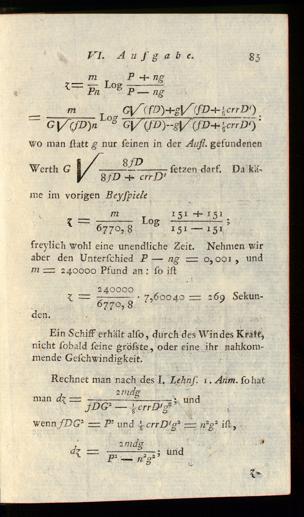 VI. Aufgabe. 83
ʒ = m/Pn Log (P + ng)/(P — ng)
= m/(G√(fD)n) Log (G√(fD)+g√(fD+⅛crrD'))/(G√(fD)--g√(fD+⅛crrD')) :
wo man ſtatt g nur ſeinen in der Aufl. gefundenen
Werth G √(8fD/(8fD + crrD')) ſetzen darf. Da kä-
me im vorigen Beyſpiele
ʒ = m/6770,8 Log (151 + 151)/(151 — 151) ;
freylich wohl eine unendliche Zeit. Nehmen wir
aber den Unterſchied P — ng = 0,001, und
m = 240000 Pfund an: ſo iſt
ʒ = 240000/6770,8 . 7,60040 = 269 Sekun-
den.
Ein Schiff erhält alſo, durch des Windes Kraft,
nicht ſobald ſeine gröſste, oder eine ihr nahkom-
mende Geſchwindigkeit.
Rechnet man nach des I. Lehnſ. 1. Anm. ſo hat
man dʒ = 2mdg/(fDG² — ⅛crrD'g²) ; und
wenn fDG² = P² und ⅛crrD'g² = n²g² iſt,
dʒ = 2mdg/(P² — n²g²) ; und
ʒ-